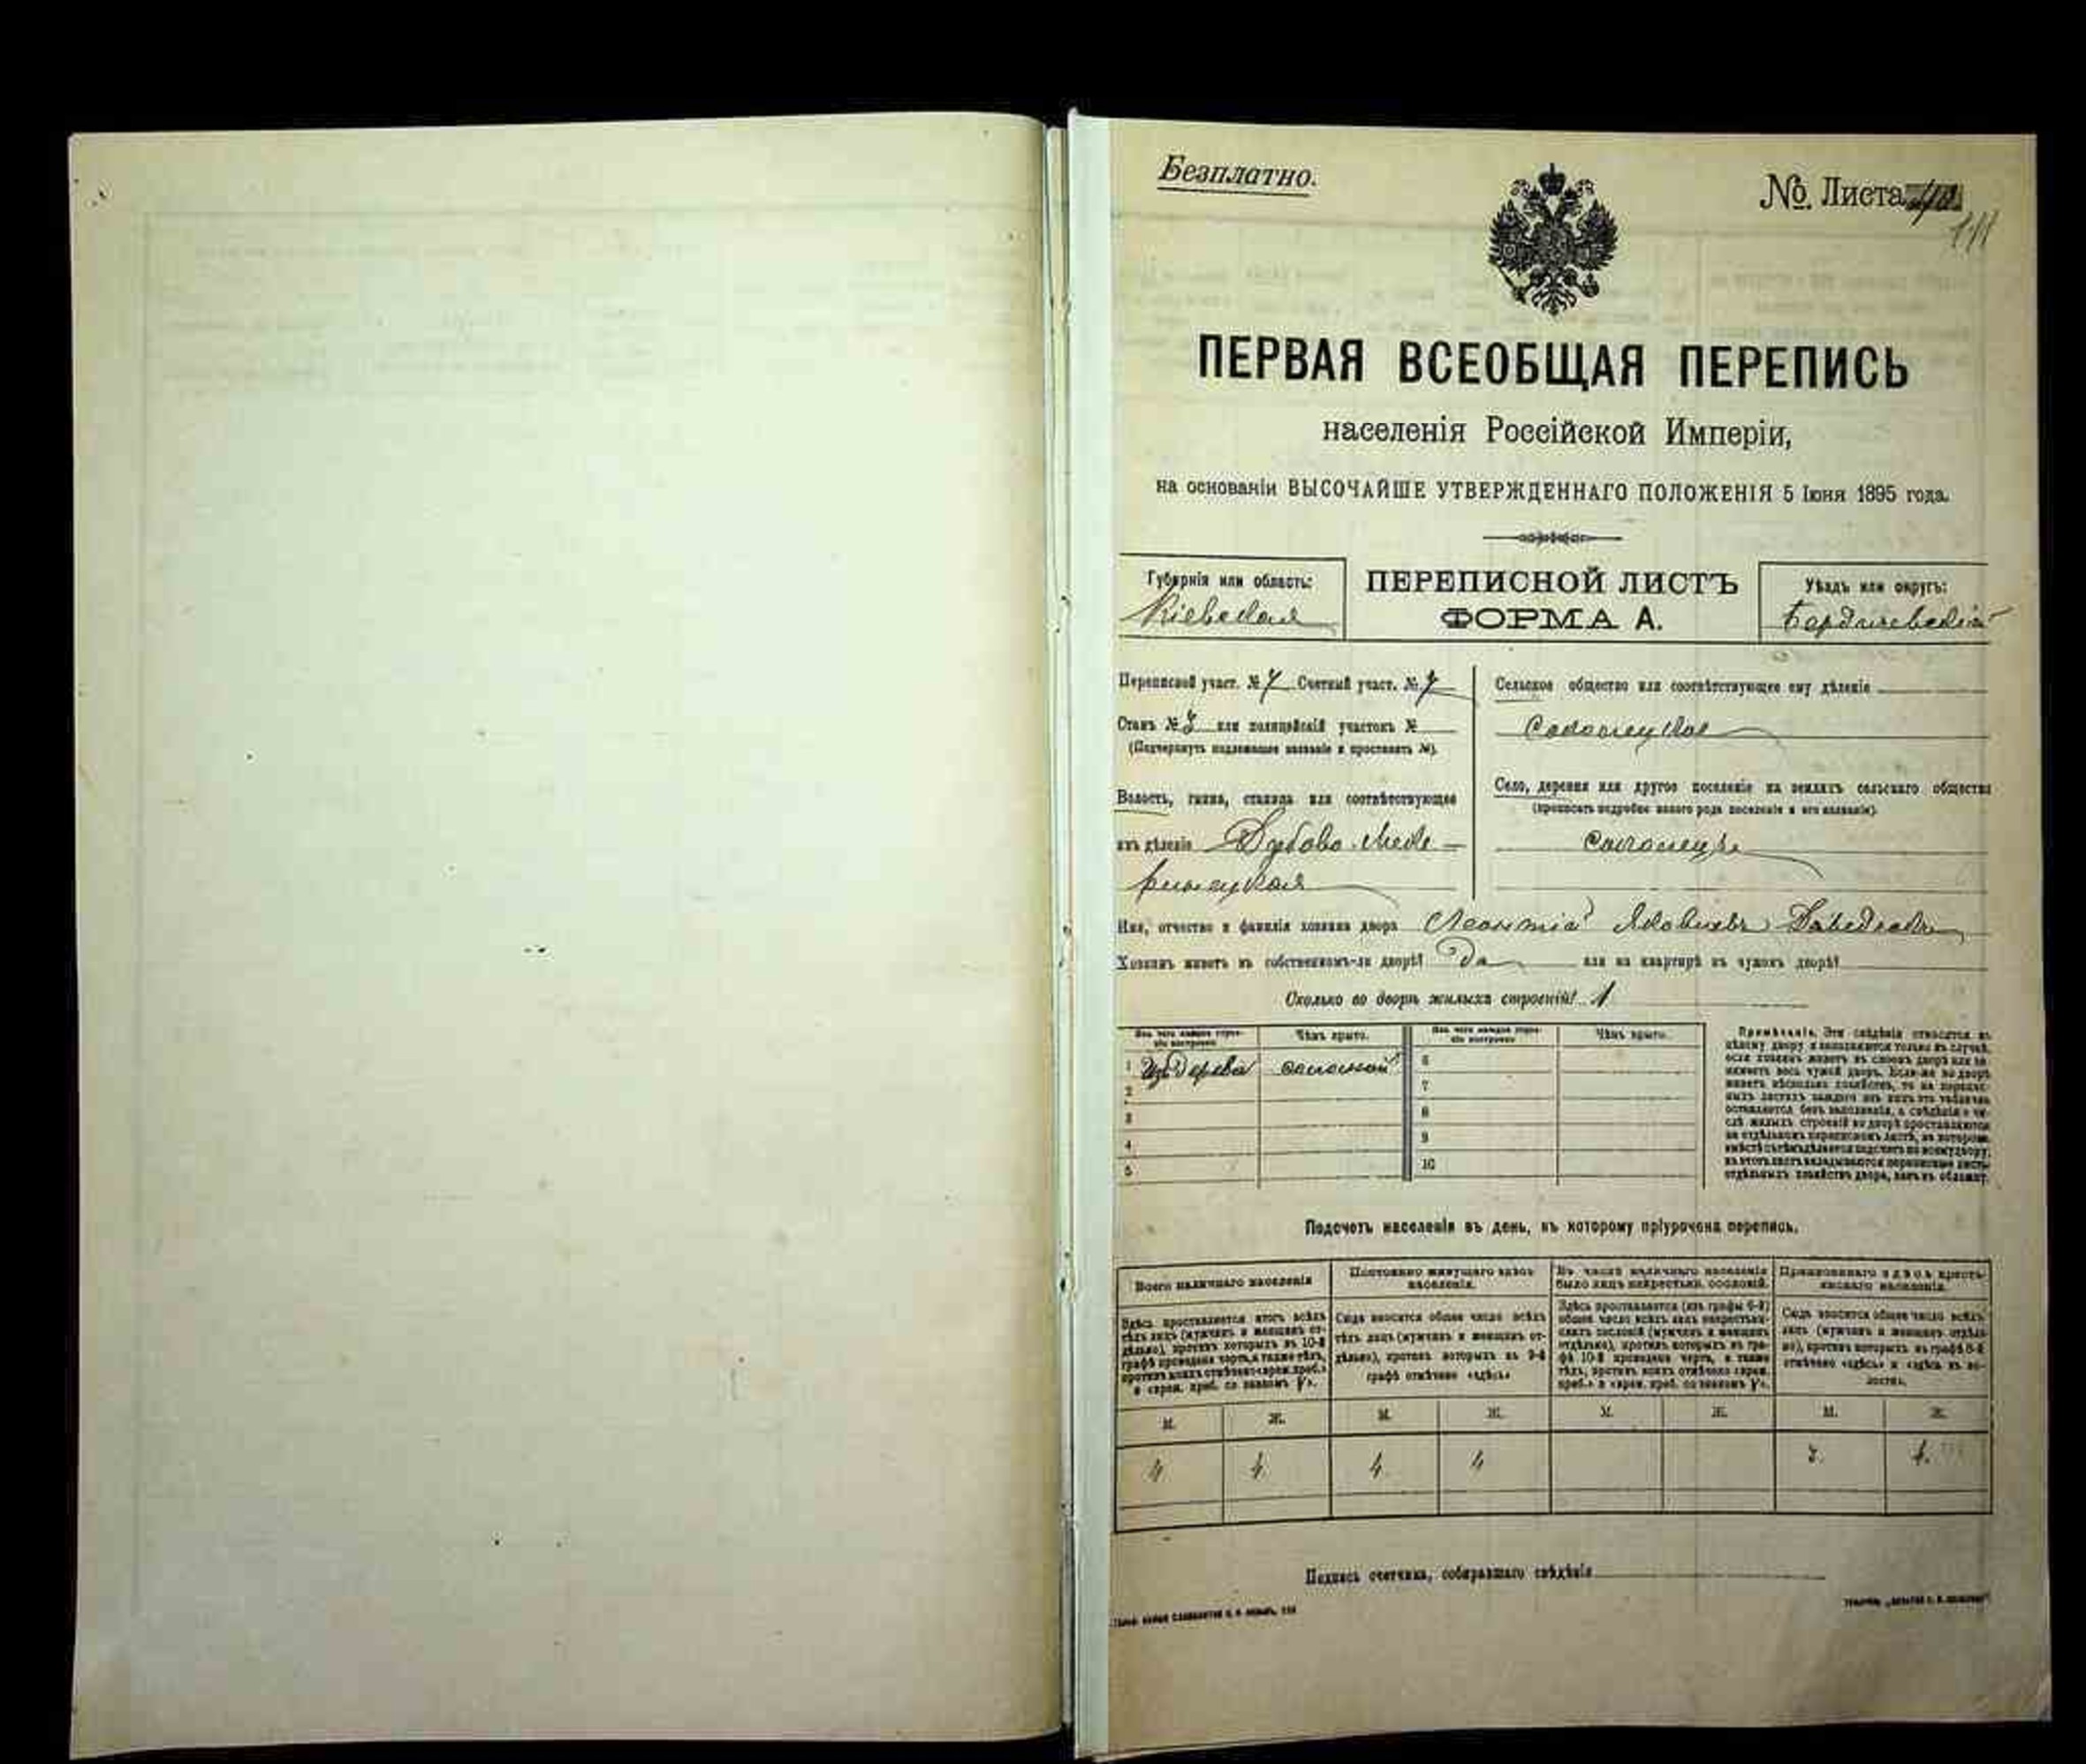 Безплатно.
№ Листа
ПЕРВАЯ ВСЕОБЩАЯ ПЕРЕПИСЬ
населенія Россійской Имперіи,
на основаніи ВЫСОЧАЙШЕ УТВЕРЖДЕННАГО ПОЛОЖЕНІЯ 5 Іюня 1895 года.
Губернія или область:
Кіевская
ПЕРЕПИСНОЙ ЛИСТЪ
ФОРМА А.
Уѣздъ или округъ:
Бердичевскій
Переписной участ. № 7 Счетный участ. № 7
Станъ № 3 или полицейскій участокъ №
(Подчеркнуть надлежащее названіе и проставить №).
Волость, гмина, станица или соотвѣтствующее
имъ дѣленіе
Сельское общество или соотвѣтствующее ему дѣленіе
Село, деревня или другое поселеніе на земляхъ сельскаго общества
(прописать подробно какого рода поселеніе и его названіе).
Имя, отчество и фамилія хозяина двора Леонтій
Хозяинъ живетъ въ собственномъ-ли дворѣ? да или на квартирѣ въ чужомъ дворѣ?
Сколько во дворѣ жилыхъ строеній? 1
Изъ чего каждое строеніе построено
Чѣмъ крыто.
Изъ чего каждое строеніе построено
Чѣмъ крыто.
1 Изъ дерева соломой 6
2 7
3 8
4 9
5 10
Примѣчаніе. Эти свѣдѣнія относятся къ
цѣлому двору и заполняются только въ случаѣ,
если хозяинъ живетъ въ своемъ дворѣ или за-
нимаетъ весь чужой дворъ. Если-же во дворѣ
живетъ нѣсколько хозяйствъ, то на перепис-
ныхъ листахъ каждаго изъ нихъ эта табличка
оставляется безъ заполненія, а свѣдѣнія о чи-
слѣ жилыхъ строеній во дворѣ проставляются
на отдѣльномъ переписномъ листѣ, на которомъ
вмѣстѣ съ тѣмъ дѣлается подсчетъ по всему двору;
въ этотъ листъ вкладываются переписные листы
отдѣльныхъ хозяйствъ двора, какъ въ обложку.
Подсчетъ населенія въ день, къ которому пріурочена перепись.
Всего наличнаго населенія
Постоянно живущаго здѣсь
населенія.
Въ числѣ наличнаго населенія
было лицъ некрестьян. сословій.
Приписаннаго здѣсь кресть-
янскаго населенія.
Здѣсь проставляется итогъ всѣхъ
тѣхъ лицъ (мужчинъ и женщинъ от-
дѣльно), противъ которыхъ въ 10-й
графѣ проведена черта, а также тѣхъ,
противъ коихъ отмѣчено «врем. преб.»
и «врем. преб. со знакомъ V».
Сюда вносится общее число всѣхъ
тѣхъ лицъ (мужчинъ и женщинъ от-
дѣльно), противъ которыхъ въ 9-й
графѣ отмѣчено «здѣсь»
Здѣсь проставляется (изъ графы 6-й)
общее число всѣхъ лицъ некрестьян-
скихъ сословій (мужчинъ и женщинъ
отдѣльно), противъ которыхъ въ гра-
фѣ 10-й проведена черта, а также
тѣхъ, противъ коихъ отмѣчено «врем.
преб.» и «врем. преб. со знакомъ V».
Сюда вносится общее число всѣхъ
лицъ (мужчинъ и женщинъ отдѣль-
но), противъ которыхъ въ графѣ 8-й
отмѣчено «здѣсь» и «здѣсь въ во-
лости».
М. Ж. М. Ж. М. Ж. М. Ж.
4 4 4 4 3. 4.
Подпись счетчика, собиравшаго свѣдѣнія